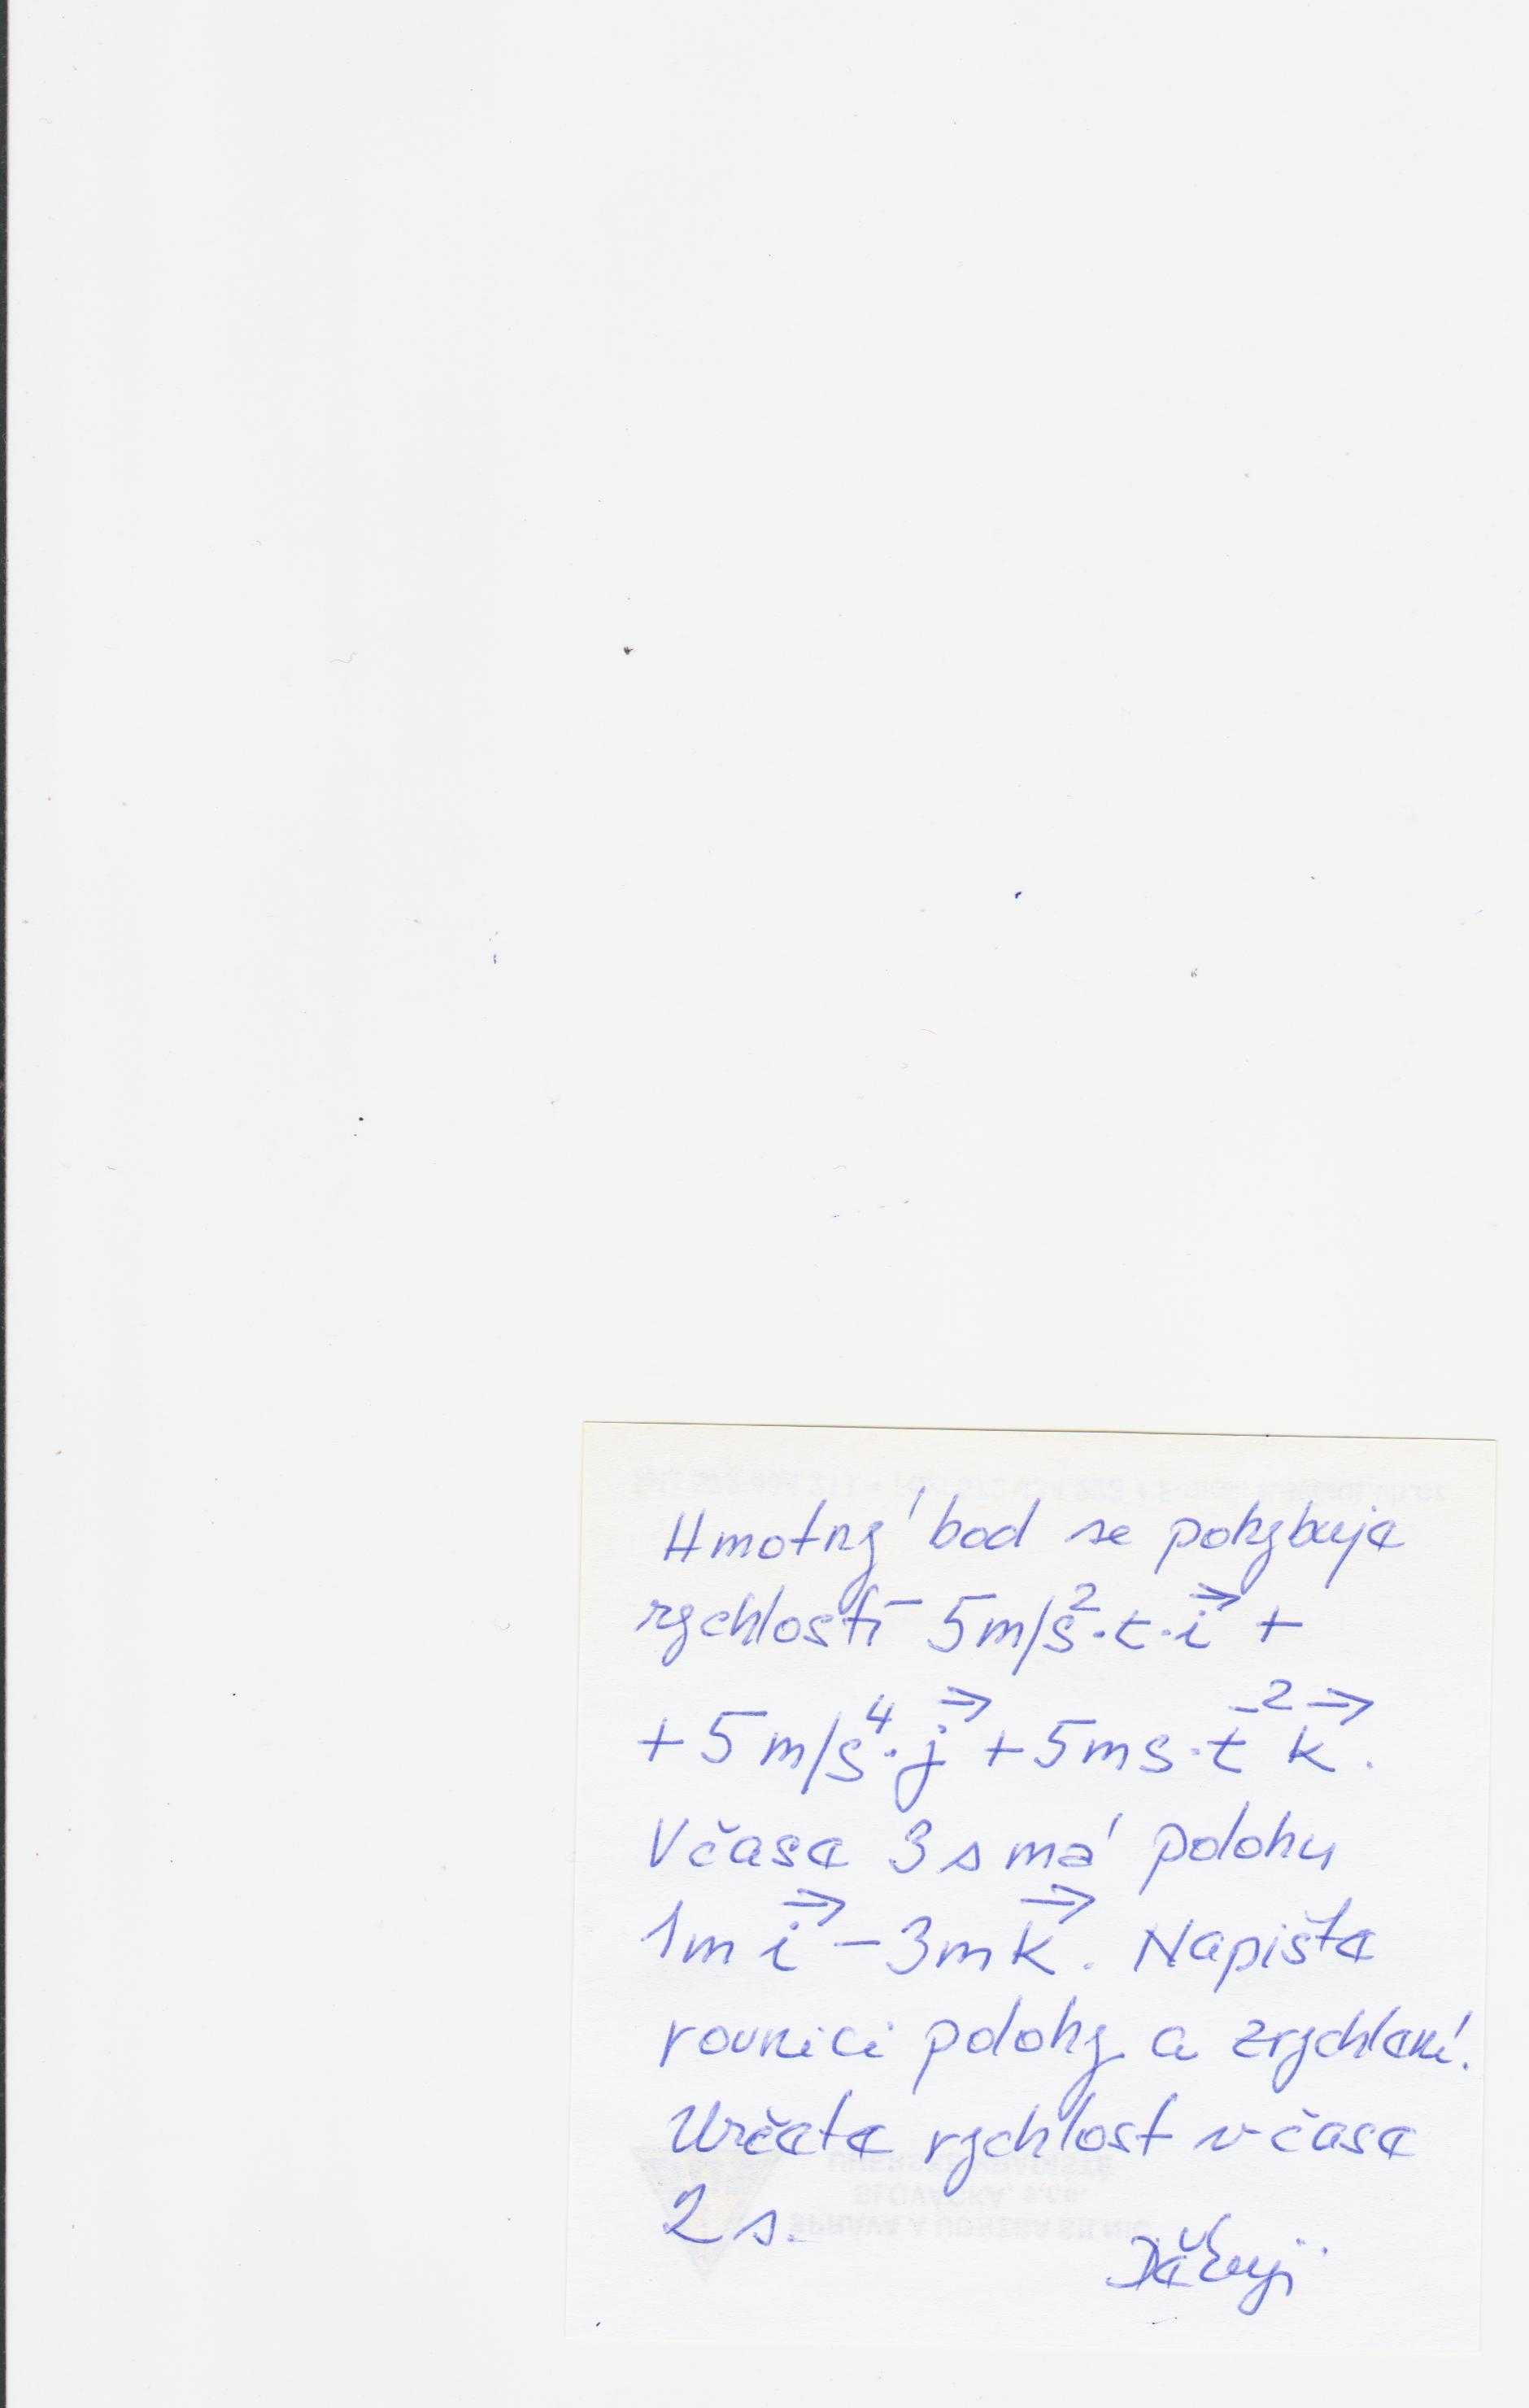 Hmotný bod se pohybuje
rychlostí 5m/s²·t·i⃗ +
+5m/s⁴·j⃗ +5ms·t⁻² k⃗.
V čase 3s má polohu
1m i⃗ -3m k⃗. Napište
rovnici polohy a zrychlení.
Určete rychlost v čase
2s.
Děkuji